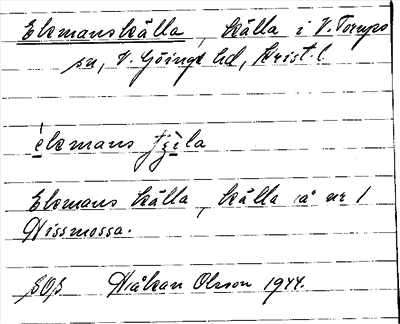 Ekmanskälla, källa i V. Torups
sn, V. Göinge hd, Krist. l.
ekmans
Ekmans källa, källa å nr 1
Nissmossa.
Håkan Olsson 1944.